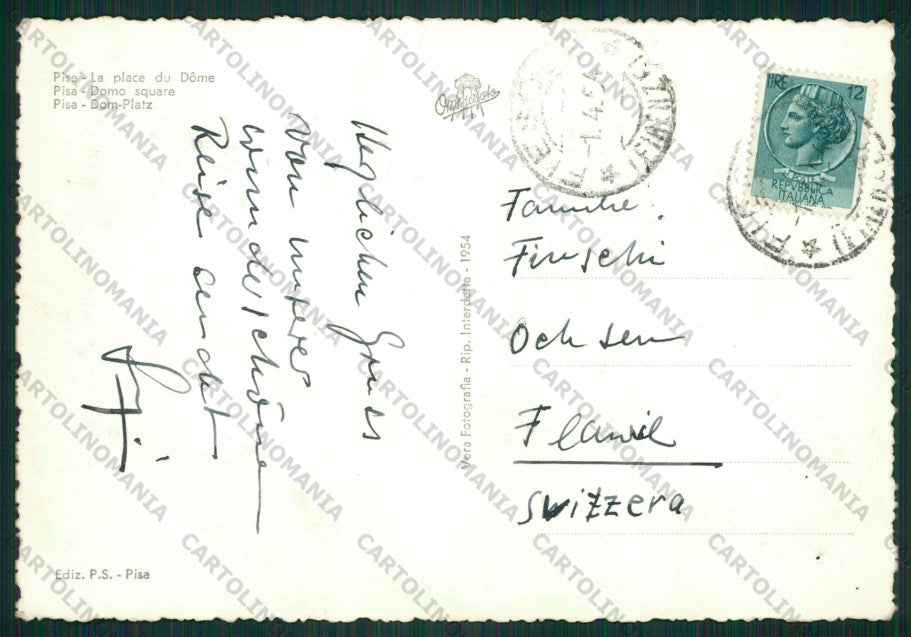 Pisa - La place du Dôme
Pisa - Domo square
Pisa - Dom-Platz
Herzlichen Gruss
von unserer
wunderschönen
Reise sendet
Vera Fotografia - Rip. Interdetta - 1954
LIRE 12
POSTE
REPVBBLICA
ITALIANA
Familie
Ochsen
Flawil
Svizzera
Ediz. P.S. - Pisa
CARTOLINOMANIA